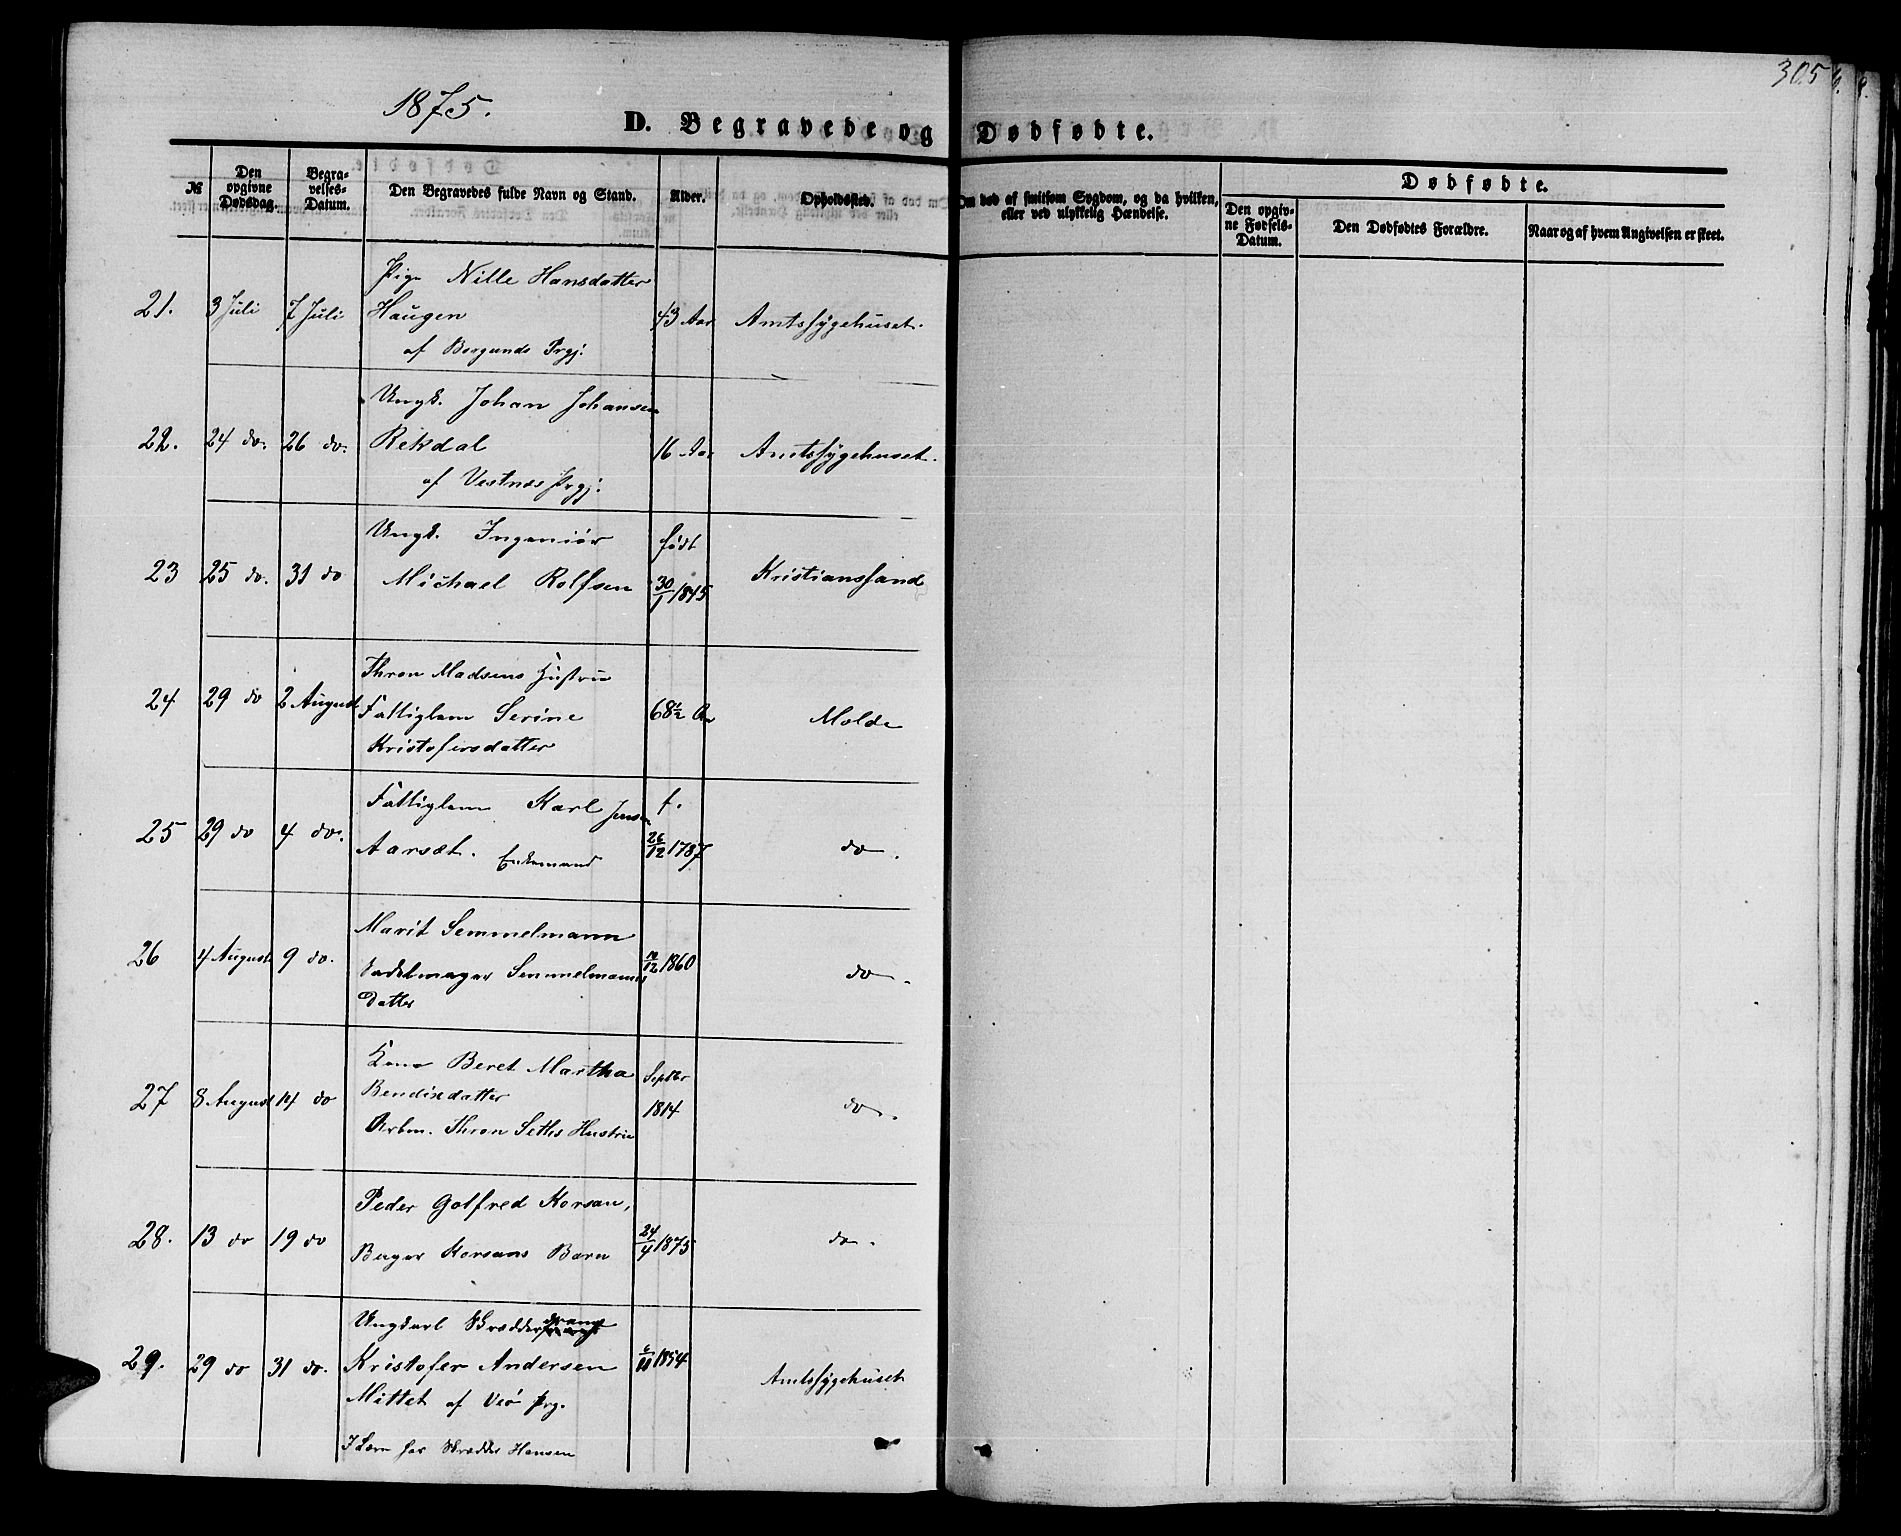 305
1875.
D. Begravede og Dødfødte.
№
Den opgivne Dødsdag.
Begravelses-Datum.
Den Begravedes fulde Navn og Stand.
Alder.
Opholdssted.
Om død af smitsom Sygdom, og da hvilken, eller ved ulykkelig Hændelse.
Dødfødte.
Den opgivne Fødsels-Datum.
Den Dødfødtes Forældre.
Naar og af hvem Angivelsen er skeet.
21. 3 Juli 7 Juli Pige Nille Hansdatter
Haugen 43 Aar Amtssygehuset.
af Borgunds Prgj.
22. 24 do. 26 do. Ungk. Johan Johansen
Rekdal 16 Aar Amtssygehuset.
af Vestnes Prgj.
23 25 do. 31 do Ungk. Ingeniör født
Michael Rolfsen 30/1 1845 Kristianssand
24 29 do 2 August Thron Madsens Hustru
Fattiglem Serine 68 1/2 Aar Molde
Kristofersdatter
25 29 do 4 do. Fattiglem Karl Jensen f.
Aarsæt. Enkemand 26/12 1787 do.
26 4 August 9 do. Marit Semmelmann
Sadelmager Semmelmanns /12 1860 do.
Datter
27 8 August 14 do Kone Beret Martha Septbr
Bendixdatter 1814 do.
Arbm. Thron Seths Hustru
28. 13 do 19 do Peder Gotfred Korsan,
Bager Korsans Barn 24/4 1875 do.
29. 29 do 31 do. Ungkarl Skrædderdreng
Kristofer Andersen 6/11 1854 Amtssygehuset
Mittet af Veö Prg.
I Lære hos Skrædder Hansen